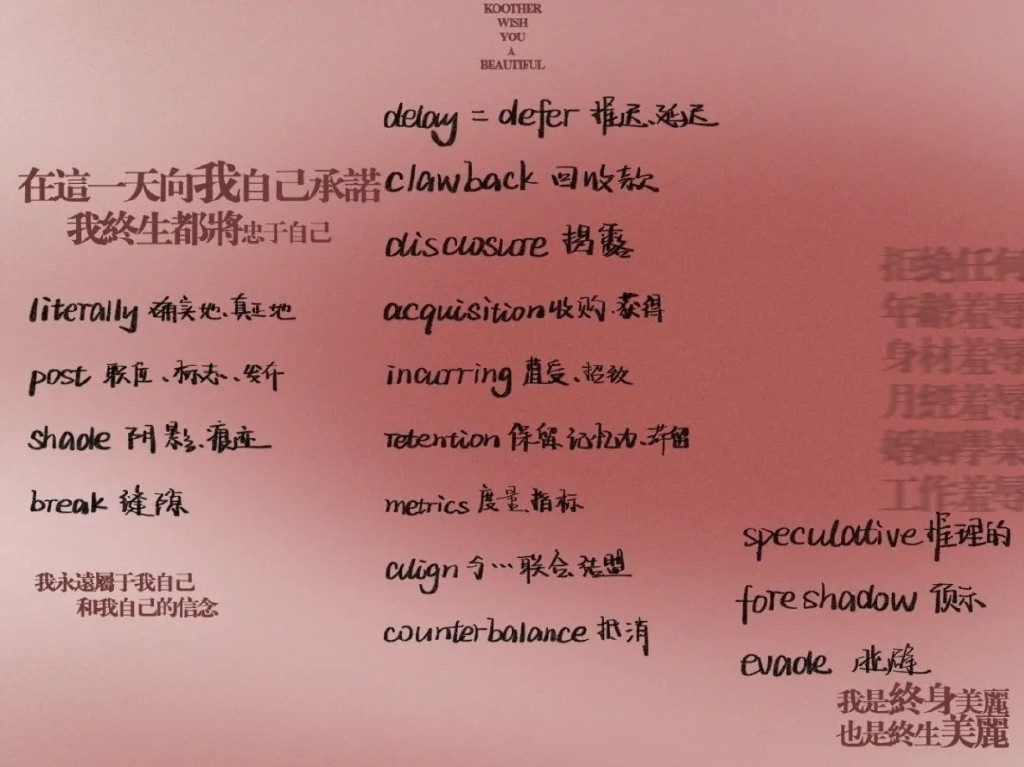 KOOTHER
WISH
YOU
A
BEAUTIFUL
在這一天向我自己承諾
我終生都將忠于自己
literally 确实地、真正地
post 职位、标志、发行
shade 阴影、痕迹
break 缝隙
我永遠屬于我自己
和我自己的信念
delay = defer 推迟、延迟
clawback 回收款
disclosure 揭露
acquisition 收购、获得
incurring 遭受、招致
retention 保留记忆力、滞留
metrics 度量、指标
align 与…联合结盟
counterbalance 抵消
拒绝任何
年齡羞辱
身材羞辱
月經羞辱
婚姻學業
工作羞辱
speculative 推理的
foreshadow 预示
evade 逃避
我是終身美麗
也是終生美麗